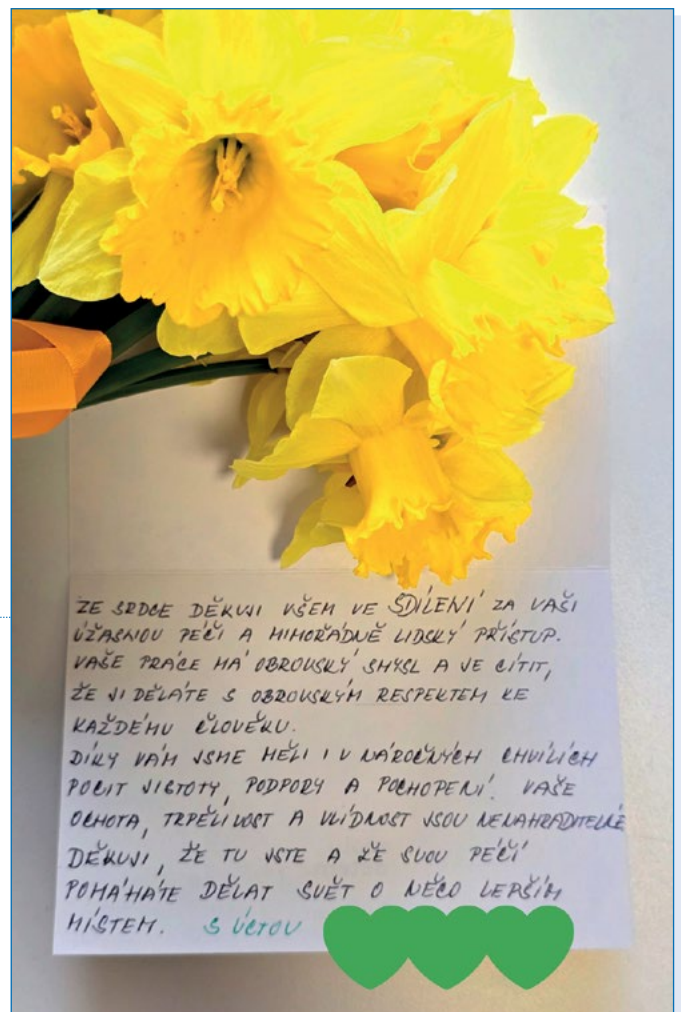 ZE SRDCE DĚKUJI VŠEM VE SDÍLENÍ ZA VAŠI
ÚŽASNOU PÉČI A MIMOŘÁDNĚ LIDSKÝ PŘÍSTUP.
VAŠE PRÁCE MÁ OBROVSKÝ SMYSL A JE CÍTIT,
ŽE JI DĚLÁTE S OBROVSKÝM RESPEKTEM KE
KAŽDÉMU ČLOVĚKU.
DÍKY VÁM JSME MĚLI I V NÁROČNÝCH CHVÍLÍCH
POCIT JISTOTY, PODPORY A POCHOPENÍ. VAŠE
OCHOTA, TRPĚLIVOST A VLÍDNOST JSOU NENAHRADITELNÉ
DĚKUJI, ŽE TU JSTE A ŽE SVOU PÉČÍ
POMÁHÁTE DĚLAT SVĚT O NĚCO LEPŠÍM
MÍSTEM. S ÚCTOU